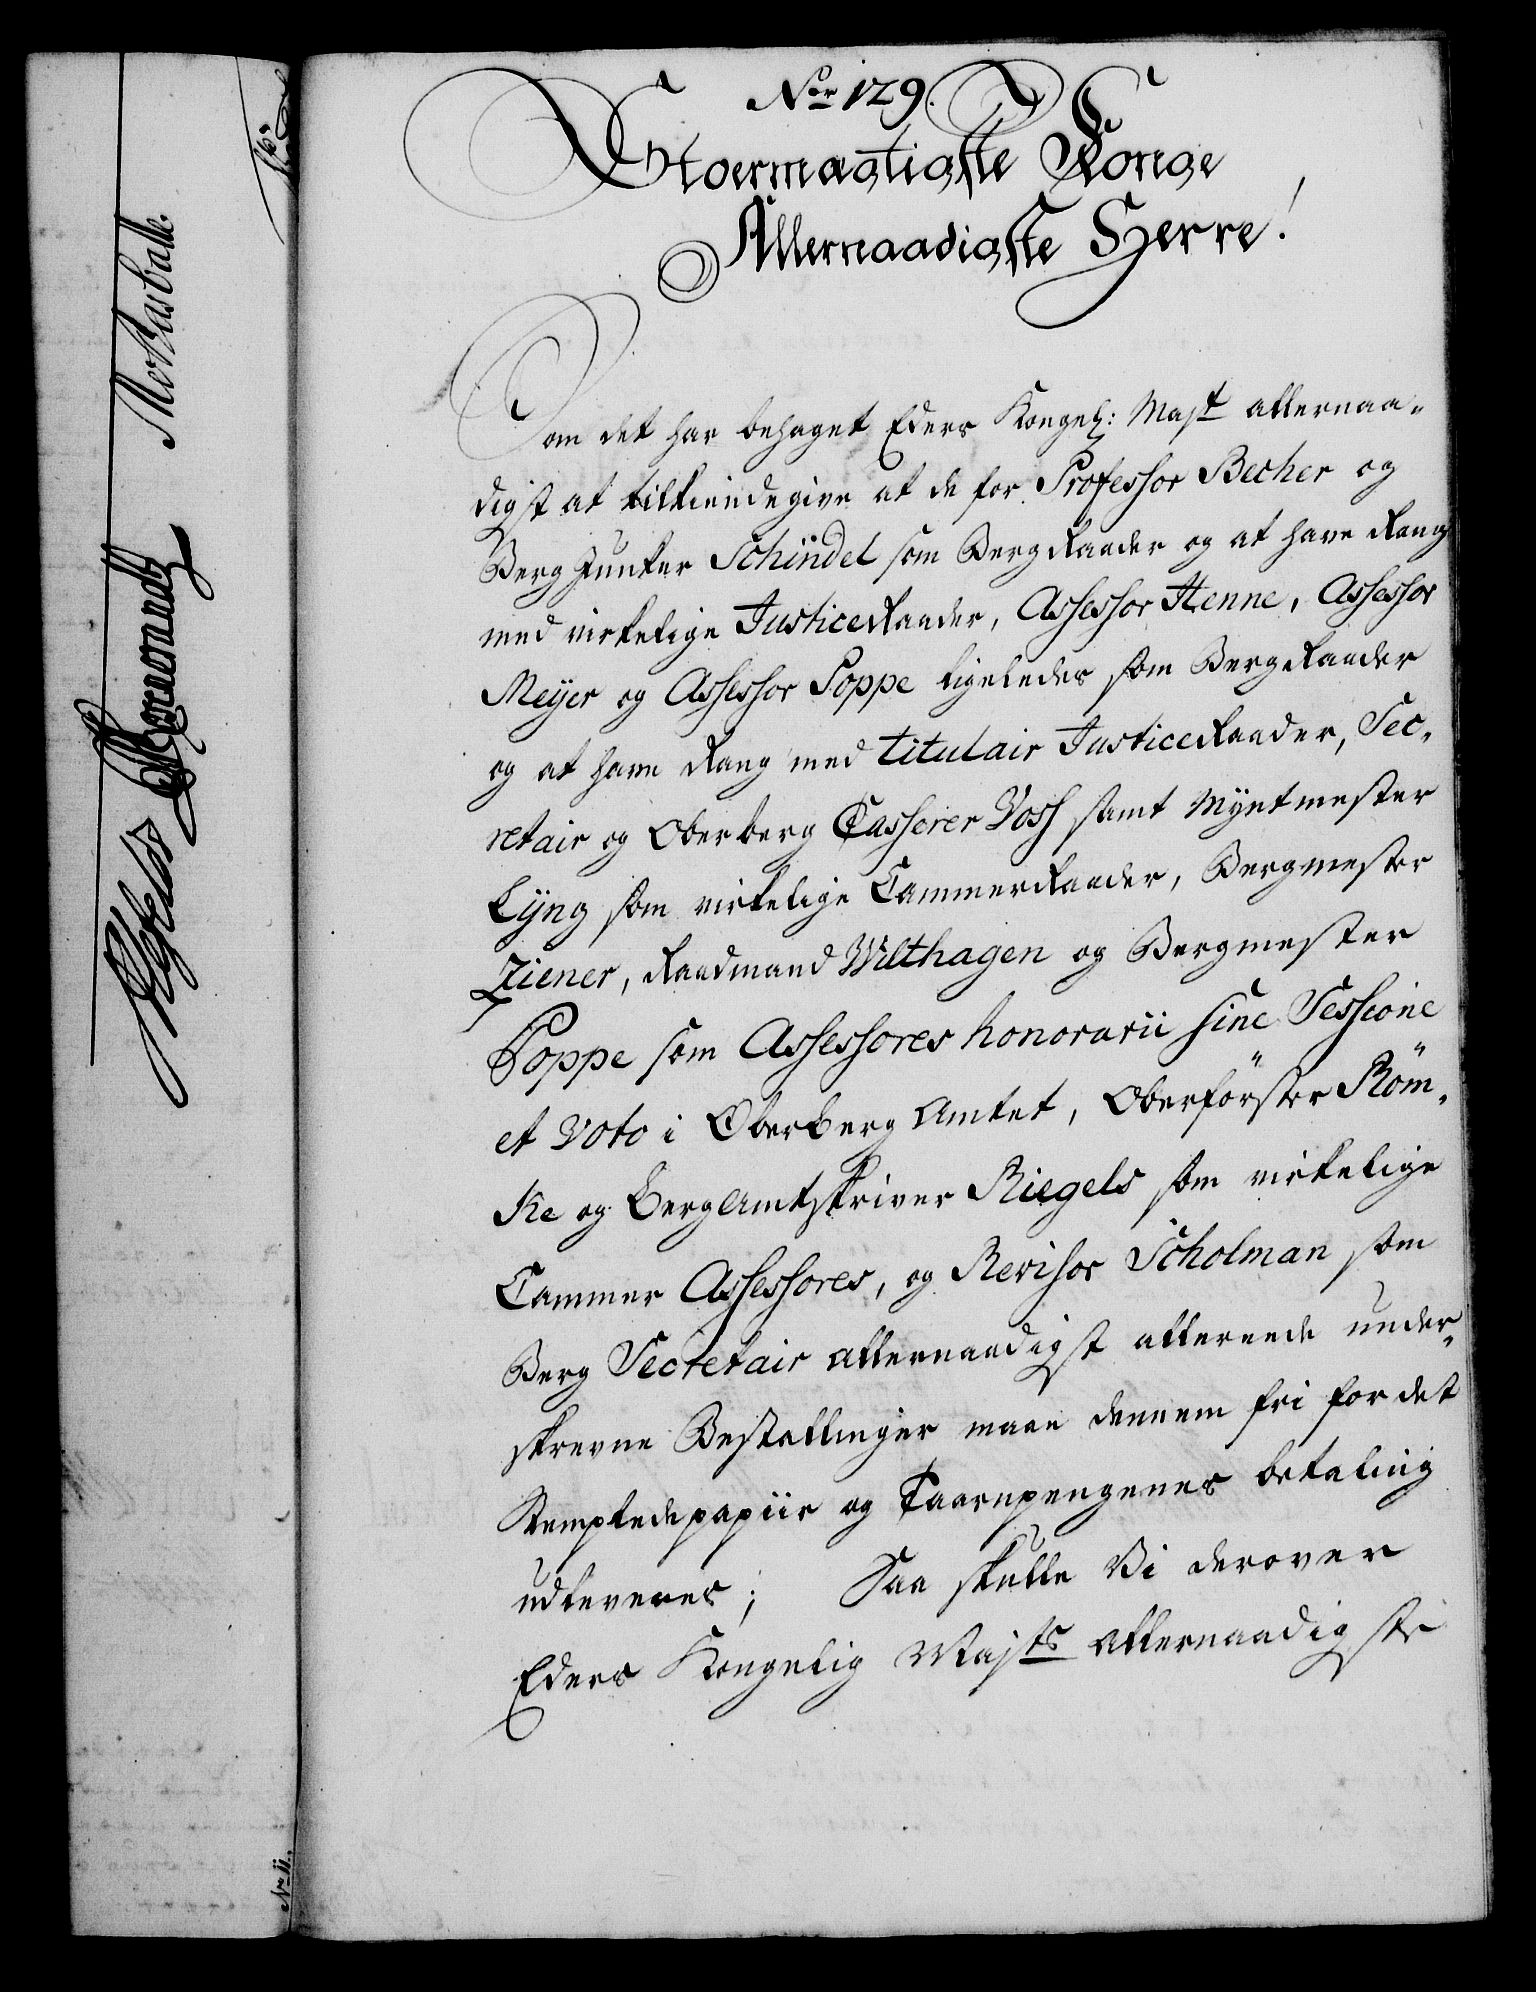 No 129.
Stormægtigste Konge
Allernaadigste Herre!
Som det har behaget Eders Kongel: Mayt allernaa-
digst at tilkiendegive at de for Professor Becher og
Berg Junker Schindel som Berg Raader og at have Rang
med virkelige Justice Raader, Assessor Henne, Assessor
Meyer og Assessor Poppe ligeledes som Berg Raader
og at have Rang med titulair Justice Raader, Sec-
retair og Oberberg Casserer Vosh samt Myntmester
Lyng som virkelige Cammer Raader, Bergmester
Ziener, Raadmand Wilthagen og Bergmester
Poppe som Assessores honorarii sine Sessione
et Voto i Oberberg Amtet, Oberförster Röm-
ke og BergAmtskriver Riegels som virkelige
Cammer Assessores, og Revisor Scholman som
Berg Secretair allernaadigst allerede under-
skrevne Bestallinger maae dennem fri for det
Stemplede papiir og Taarnpengenes betaling
udleveres; Saa skulle Vi derover
Eders Kongelig Mayts allernaadigste
No 11.